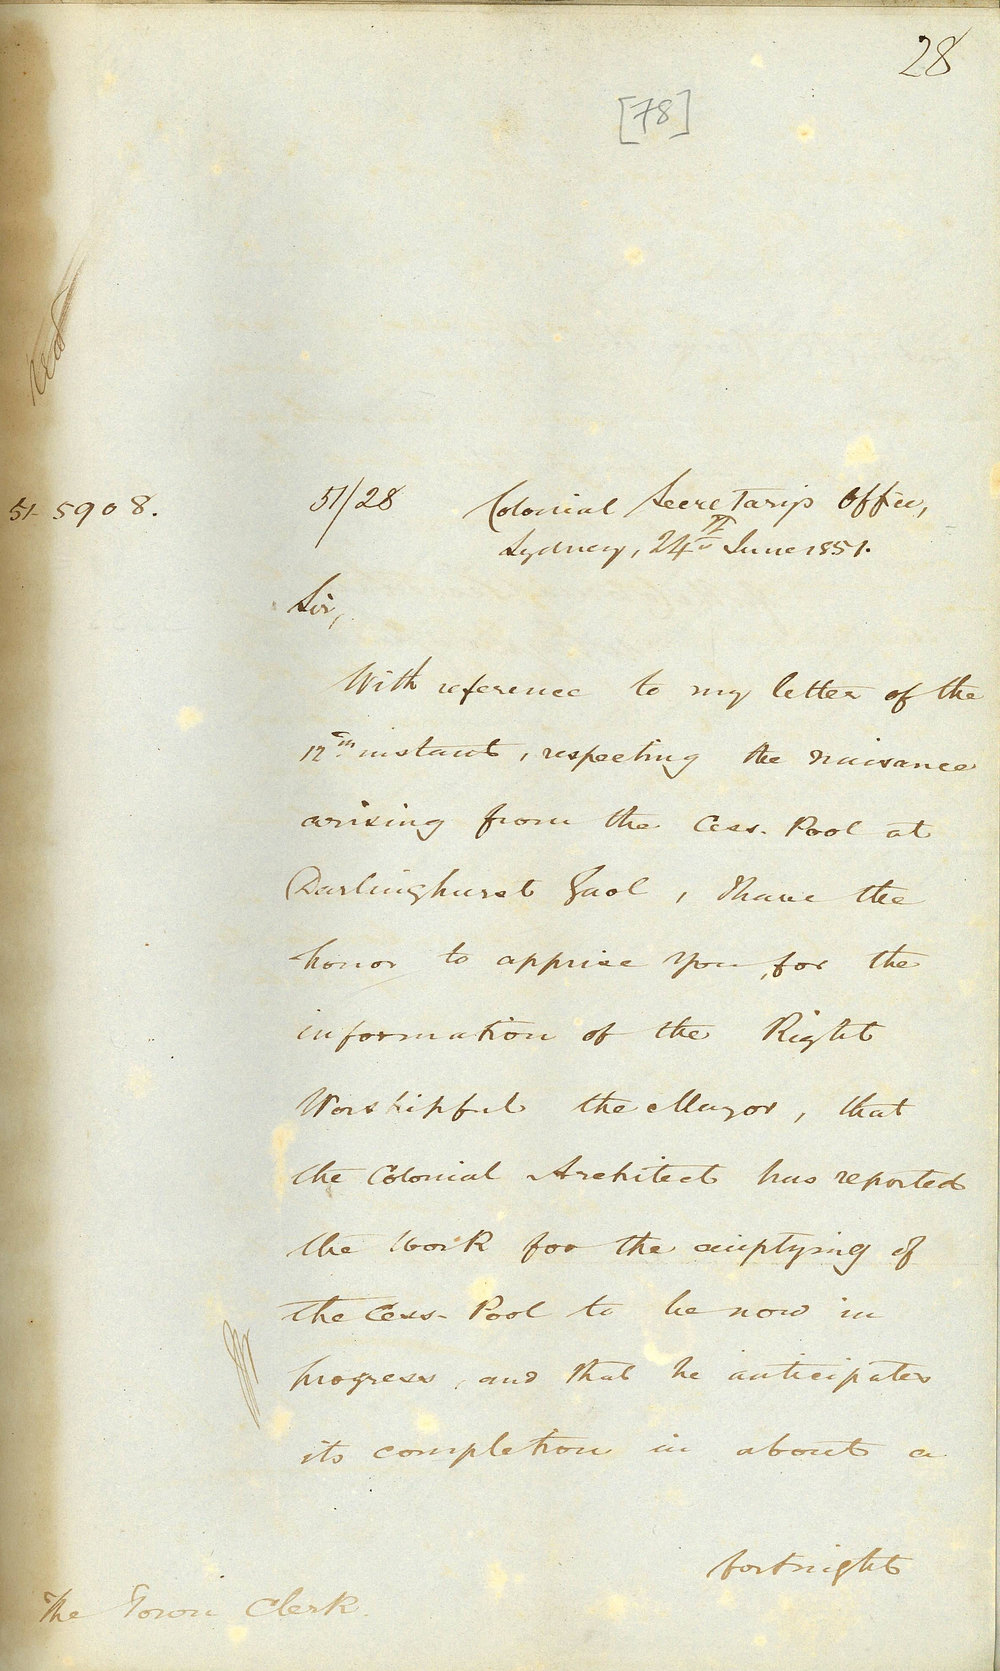 28
[78]
51-5908.
51/28 Colonial Secretarys Office,
Sydney, 24th June 1851.
Sir,
With reference to my letter of the
12th instant, respecting the nuisance
arising from the Cess-Pool at
Darlinghurst Gaol, I have the
honor to apprise you, for the
information of the Right
Worshipful the Mayor, that
the Colonial Architect has reported
the work for the emptying of
the Cess-Pool to be now in
progress, and that he anticipates
its completion in about a
fortnight
The Town Clerk.